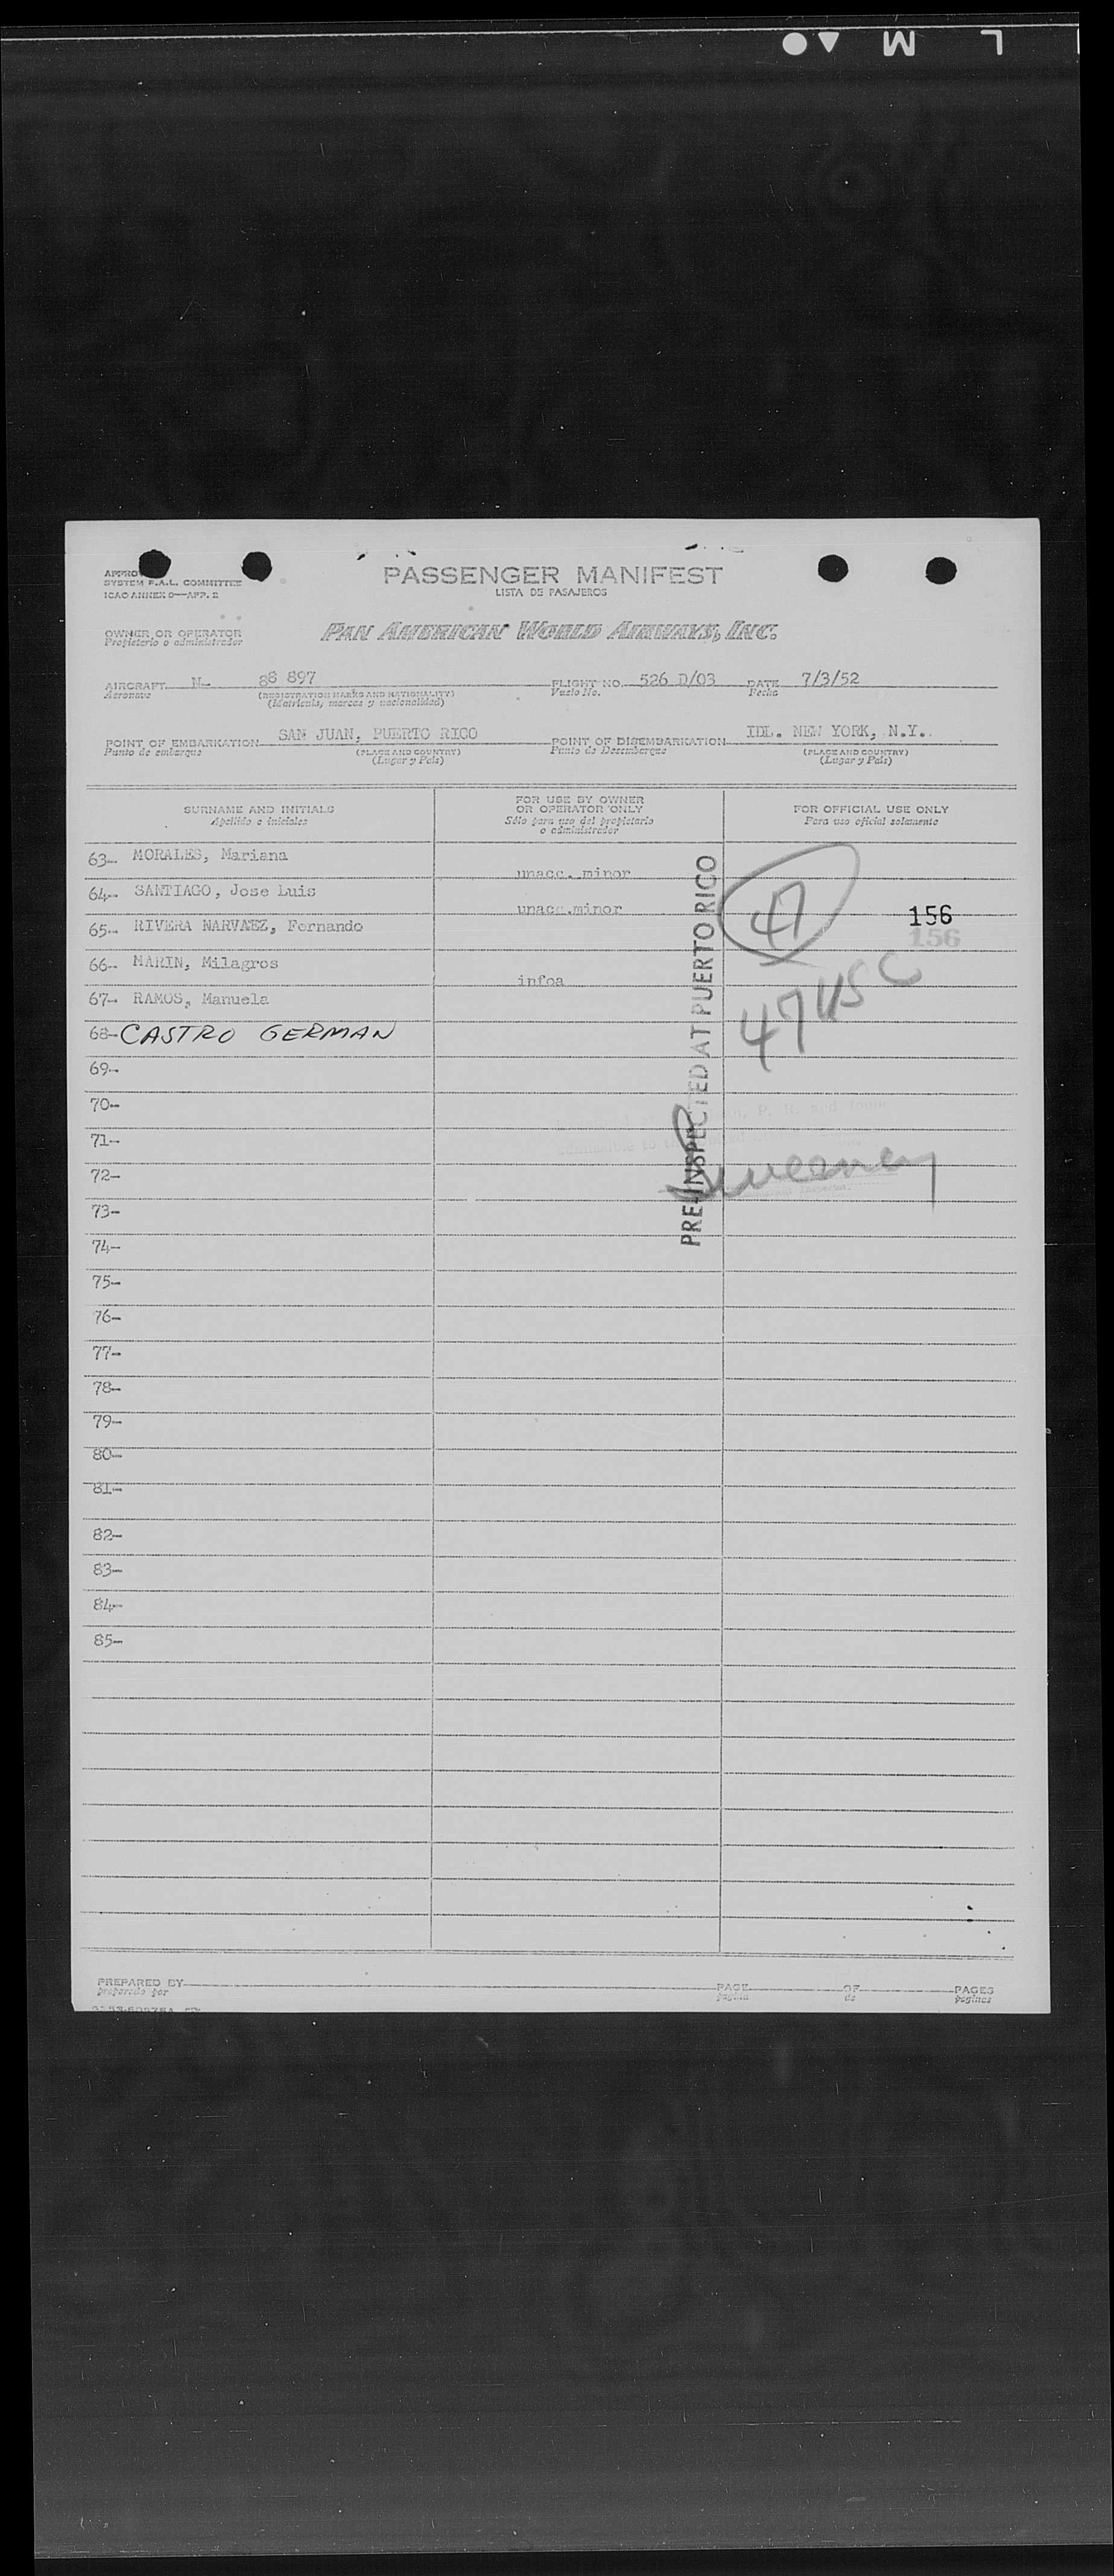 L M
PASSENGER MANIFEST
LISTA DE PASAJEROS
SYSTEM F.A.L. COMMITTEE
ICAO ANNEX 9—APP. 2
OWNER OR OPERATOR
Propietario o administrador
PAN AMERICAN WORLD AIRWAYS, INC.
AIRCRAFT N- 88 897 FLIGHT NO. 526 D/03 DATE 7/3/52
Aeronave (REGISTRATION MARKS AND NATIONALITY) Vuelo No. Fecha
(Matricula, marcas y nacionalidad)
POINT OF EMBARKATION SAN JUAN, PUERTO RICO POINT OF DISEMBARKATION IDL. NEW YORK, N.Y.
Punto de embarque (PLACE AND COUNTRY) Punto de Desembarque (PLACE AND COUNTRY)
(Lugar y Pais) (Lugar y Pais)
SURNAME AND INITIALS
Apellido e iniciales
FOR USE BY OWNER
OR OPERATOR ONLY
Sólo para uso del propietario
o administrador
FOR OFFICIAL USE ONLY
Para uso oficial solamente
63- MORALES, Mariana
unacc. minor
64- SANTIAGO, Jose Luis
unacc.minor
65- RIVERA NARVAEZ, Fernando
66- MARIN, Milagros
infoa
67- RAMOS, Manuela
68- CASTRO GERMAN
69-
70-
71-
72-
73-
74-
75-
76-
77-
78-
79-
80-
81-
82-
83-
84-
85-
47
156
156
47 USC
PRE-INSPECTED AT PUERTO RICO
PREPARED BY PAGE OF PAGES
preparado por pagina de paginas